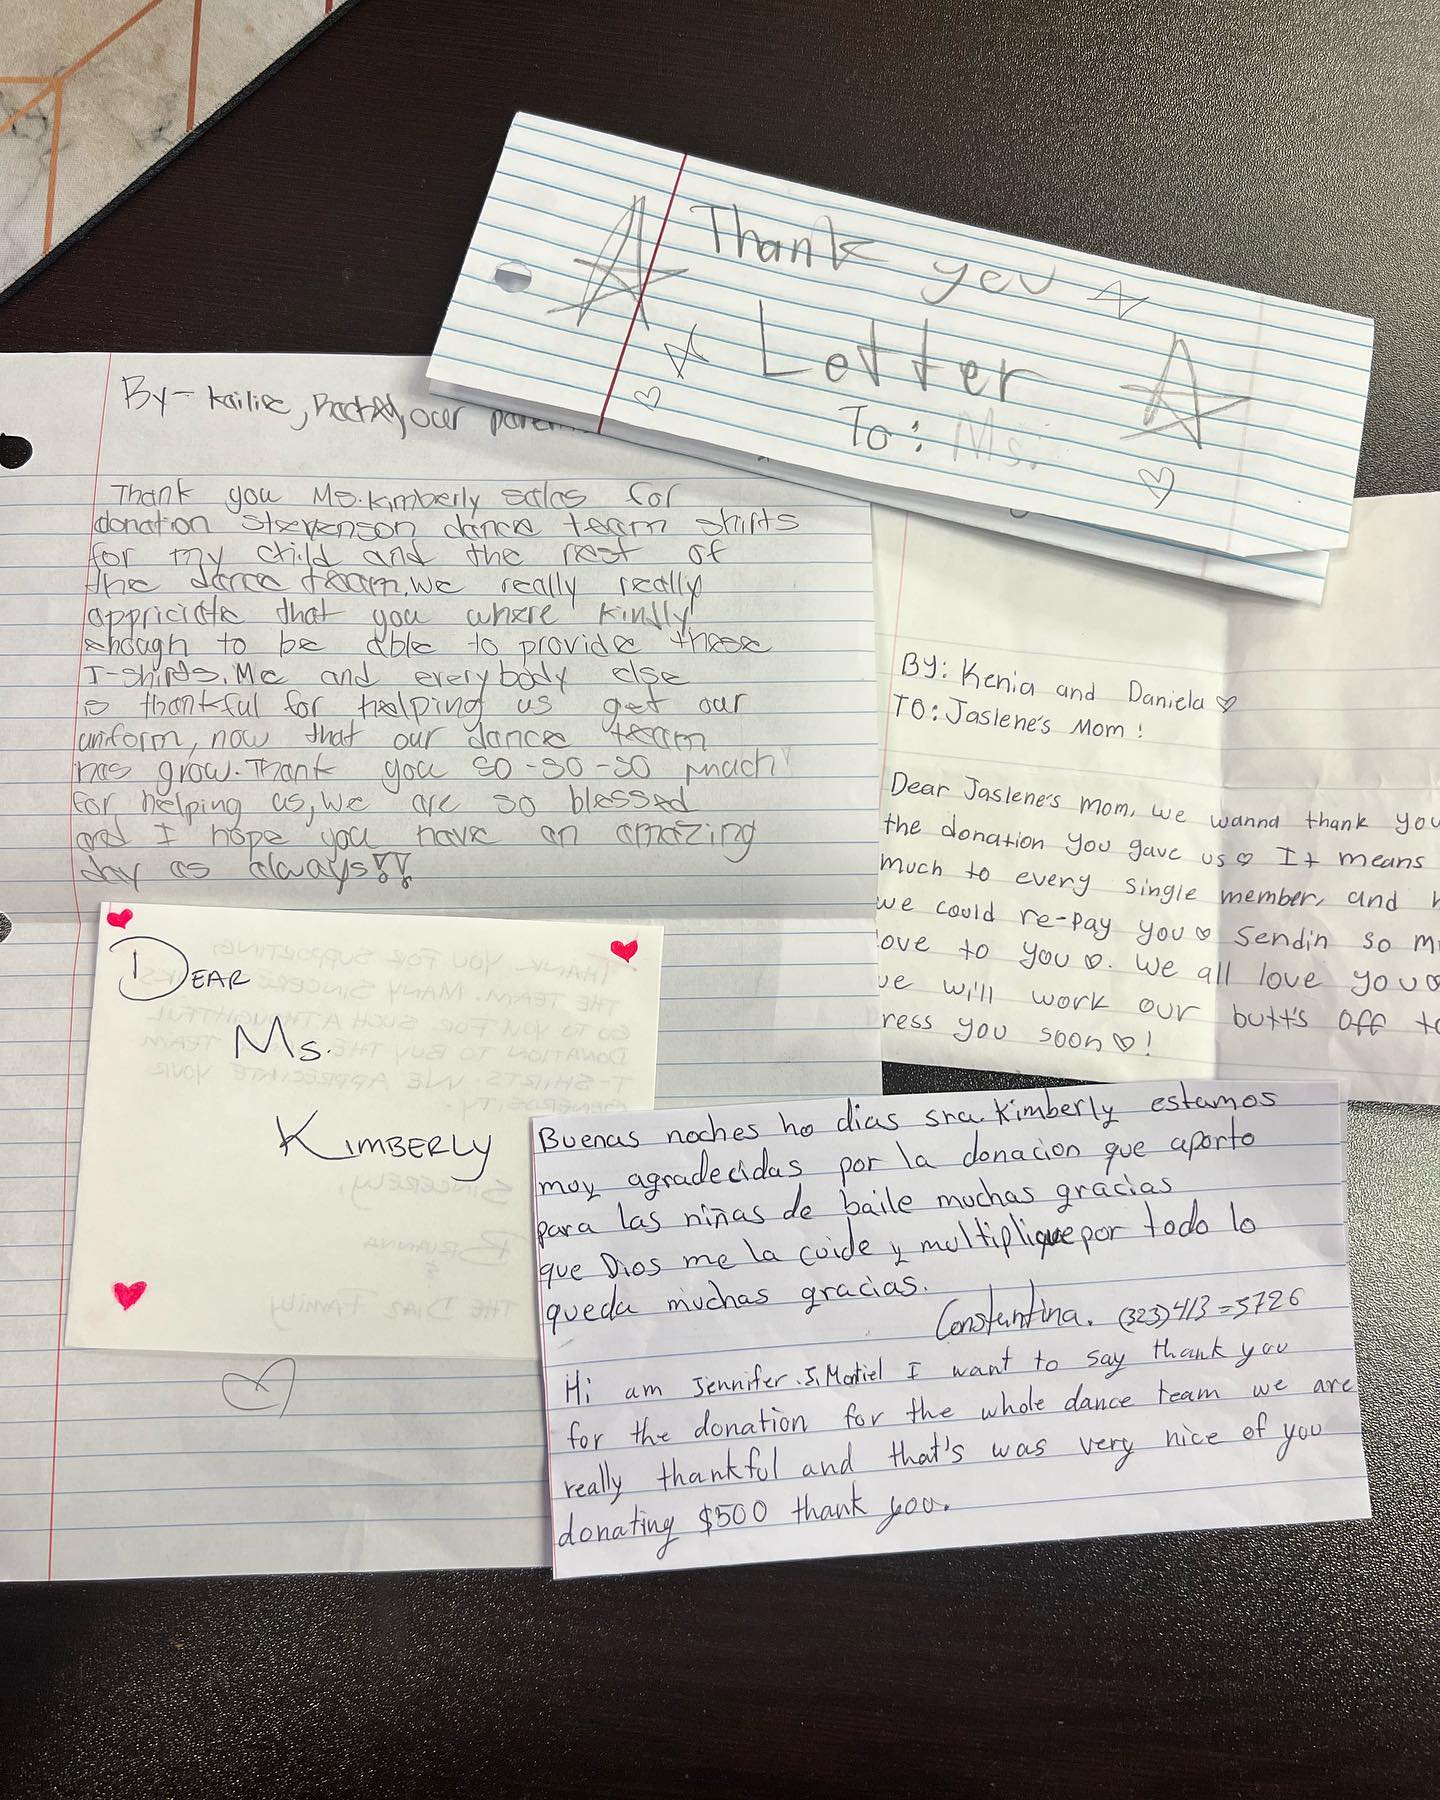 Thank you
Letter
To: Ms.
By- Kailie, our
Thank you Ms. Kimberly salas for
donation stevenson dance team shirts
for my child and the rest of
the dance team. we really really
appriciate that you where kindly
enough to be able to provide these
T-shirts. Me and everybody else
is thankful for helping us get our
uniform, now that our dance team
has grow. Thank you so-so-so much
for helping us, we are so blessed
and I hope you have an amazing
day as always!!
BY: Kenia and Daniela
TO: Jaslene's Mom!
Dear Jaslene's mom, we wanna thank you
the donation you gave us It means
much to every single member, and
we could re-pay you Sendin so
ove to you. We all love you
we will work our butt's off to
ress you soon!
DEAR
MS.
KIMBERLY
THANK YOU FOR SUPPORTING
THE TEAM. MANY SINCERE
GO TO YOU FOR SUCH A THOUGHTFUL
DONATION TO BUY THE TEAM
T-SHIRTS. WE APPRECIATE YOUR
GENEROSITY.
SINCERELY,
BRIANNA
&
THE DIAZ FAMILY
Buenas noches ho dias sra. Kimberly estamos
muy agradecidas por la donacion que aporto
para las niñas de baile muchas gracias
que Dios me la cuide y multiplique por todo lo
queda muchas gracias.
Constantina. (323) 413=5726
Hi am Jennifer. I want to say thank you
for the donation for the whole dance team we are
really thankful and that's was very nice of you
donating $500 thank you.